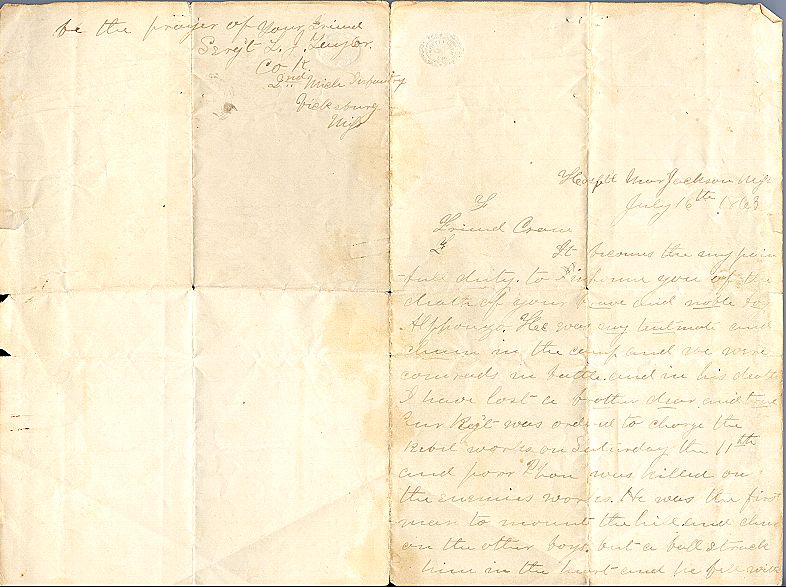 be the prayer of Your Friend
Sergt L. J. Taylor.
Co K.
2nd Mich Infantry
Vicksburg
Miss
Hospt Near Jackson Miss
July 16th 1863
Friend Crane
It becomes the my pain
full duty. to informe you of the
death of your brave and noble boy
Alphonzo. Hee was my tentmate and
chum in the camp and we were
comrads in battle. and in his death
I have lost a brother dear and true
Our Regt was ordered to charge the
Rebel works on Saturday the 11th
and poor Phon was killed on
the enemies works. He was the first
man to mount the hill and cheer
on the other boys. but a ball struck
him in the heart and he fell with